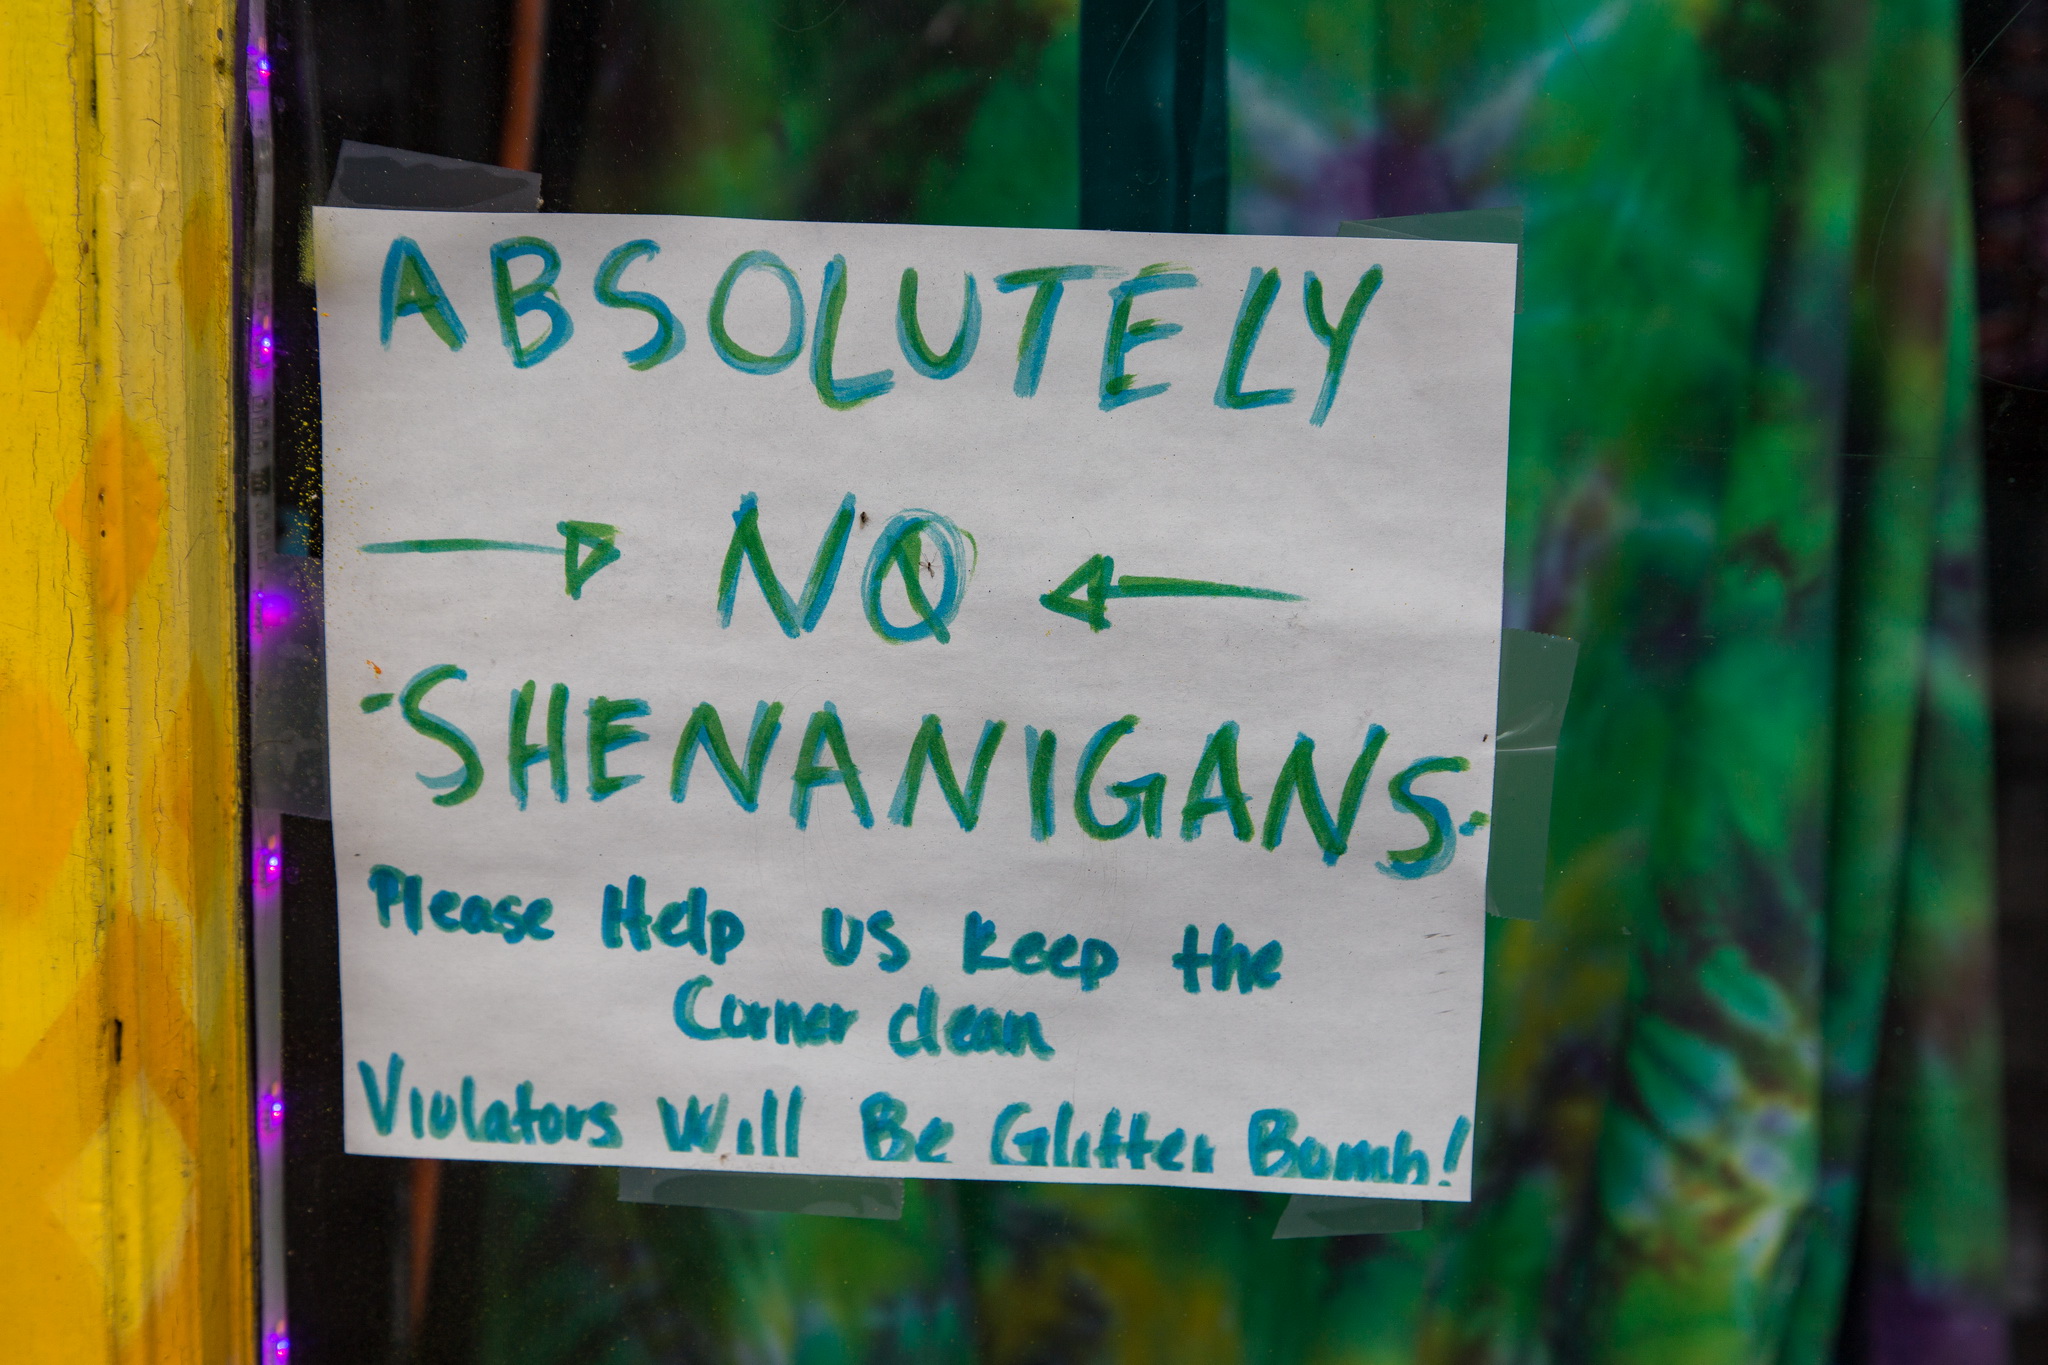 ABSOLUTELY
→ NO ←
-SHENANIGANS-
Please Help us keep the
Corner clean
Violators Will Be Glitter Bomb!